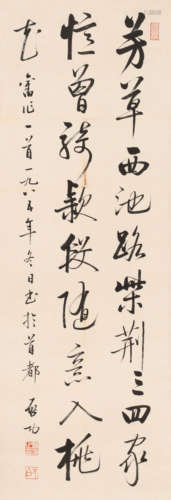 芳草西池路柴荆三四家
憶曾騎款段随意入桃
花 舊作一首一九八五年冬日书於首都 啟功